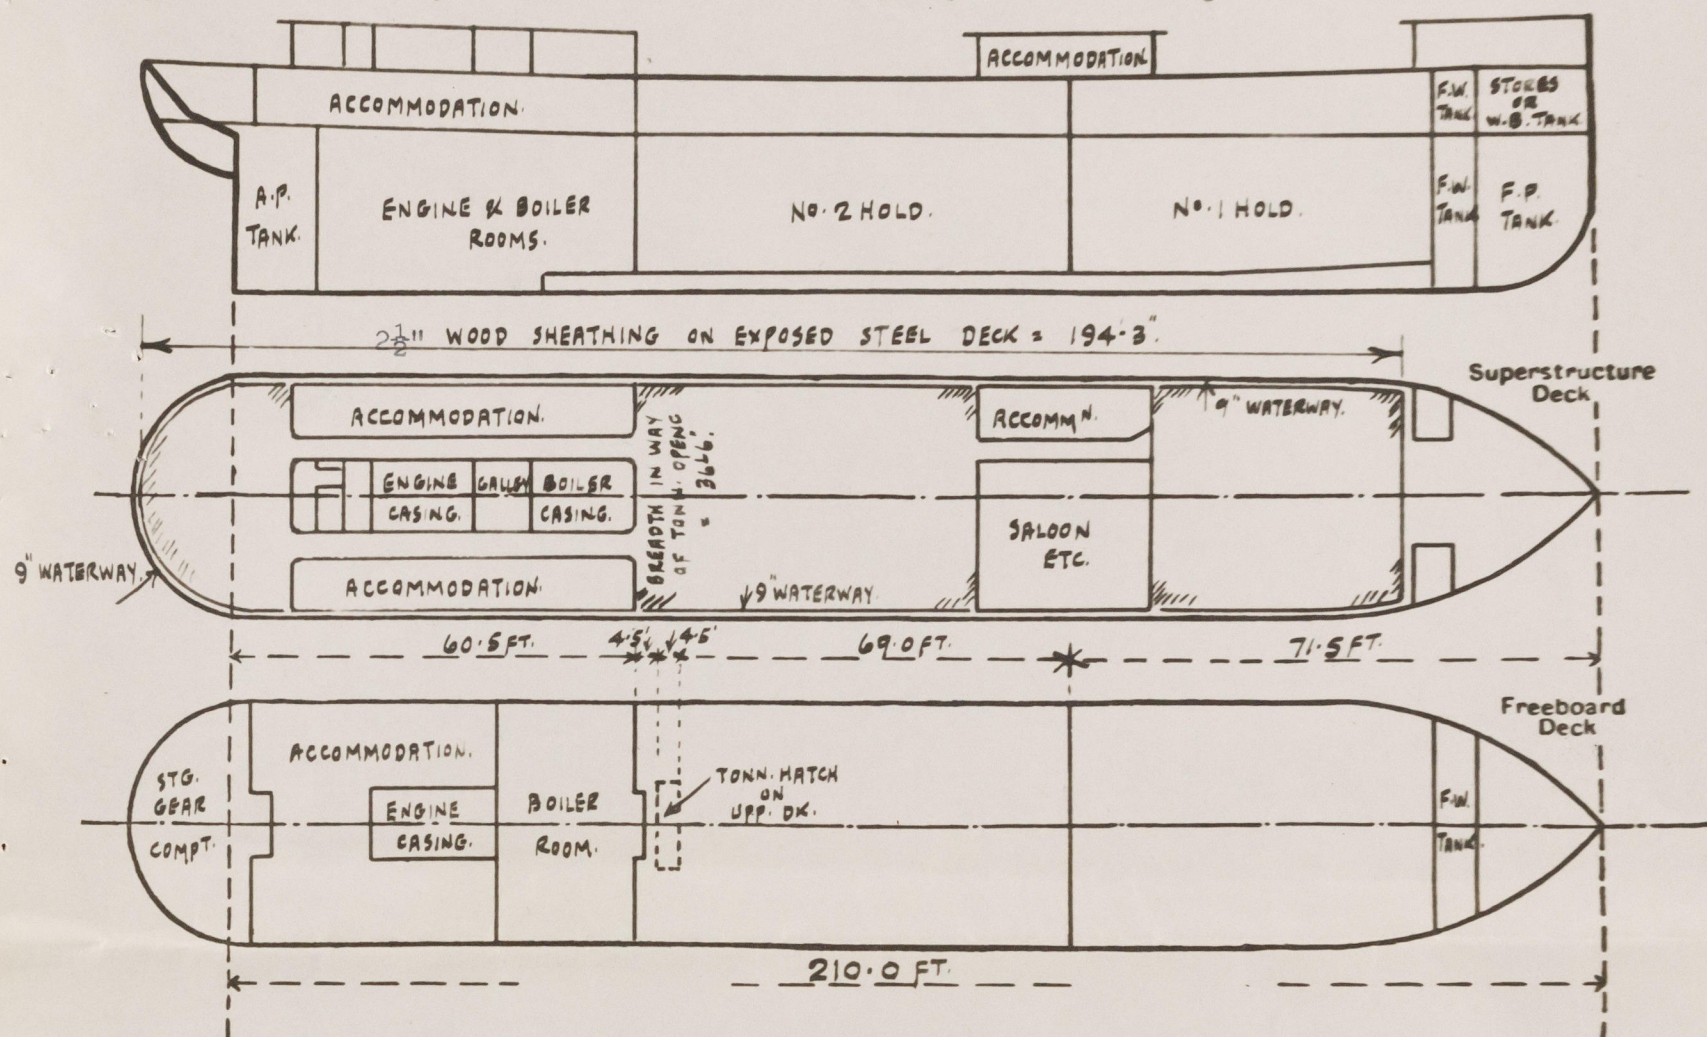 ACCOMMODATION.
ACCOMMODATION.
F.W.
TANK.
STORES
OR
W.B. TANK
A.P.
TANK.
ENGINE & BOILER
ROOMS.
No. 2 HOLD.
No. 1 HOLD.
F.W.
TANK
F.P.
TANK.
2½" WOOD SHEATHING ON EXPOSED STEEL DECK = 194'-3".
Superstructure
Deck
ACCOMMODATION.
ENGINE
CASING.
GALLEY
BOILER
CASING.
ACCOMMODATION.
BREADTH IN WAY
OF TONN. OPENG
ACCOMMN.
SALOON
ETC.
9" WATERWAY.
9" WATERWAY.
9" WATERWAY.
60.5 FT.
4.5'
4.5'
69.0 FT.
71.5 FT.
Freeboard
Deck
STG.
GEAR
COMPT.
ACCOMMODATION.
ENGINE
CASING.
BOILER
ROOM.
TONN. HATCH
ON
UPP. DK.
F.W.
TANK.
210.0 FT.